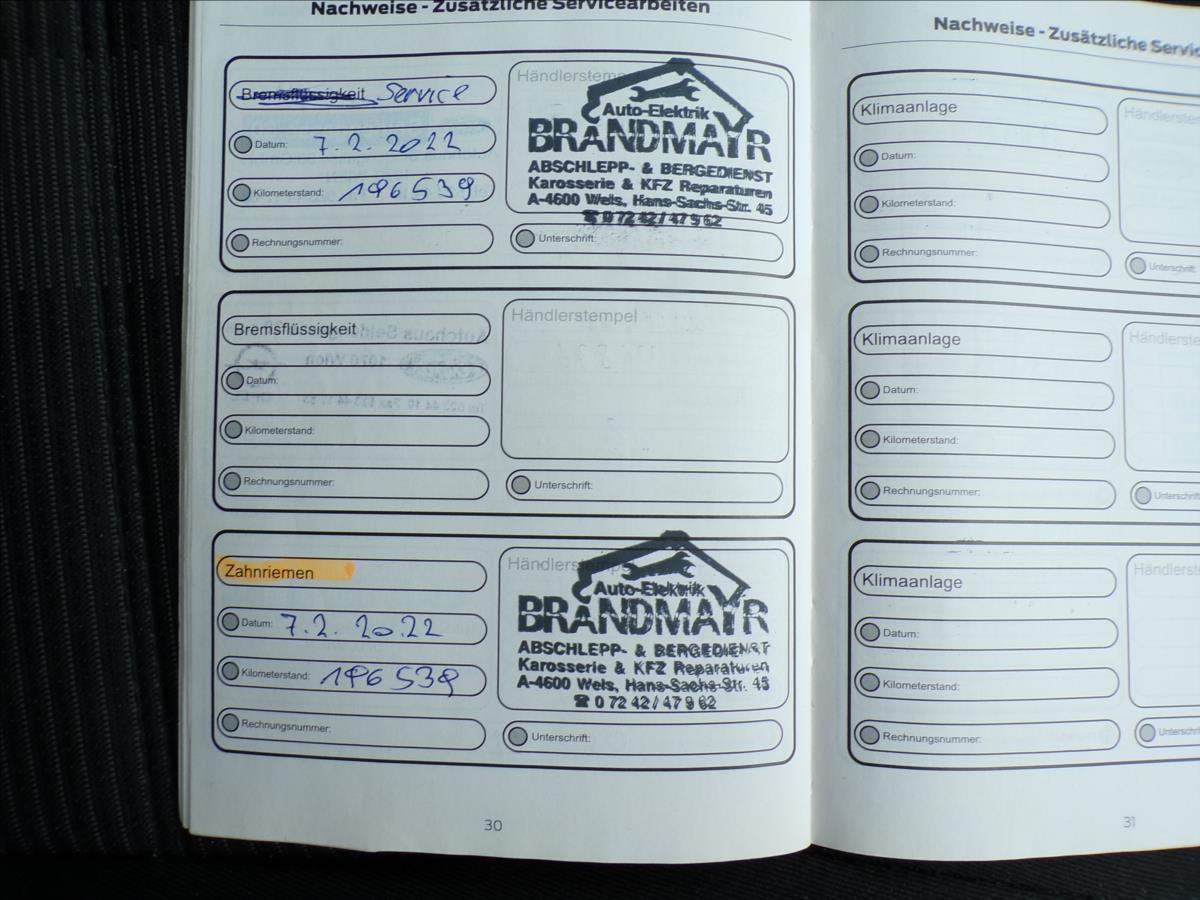 Nachweise - Zusätzliche Servicearbeiten
Bremsflüssigkeit Service
Datum: 7.2.2022
Kilometerstand: 196539
Rechnungsnummer:
Händlerstemp
Auto-Elektrik
BRANDMAYR
ABSCHLEPP- & BERGEDIENST
Karosserie & KFZ Reparaturen
A-4600 Wels, Hans-Sachs-Str. 45
☎ 0 72 42 / 47 9 62
Unterschrift:
Bremsflüssigkeit
Datum:
Kilometerstand:
Rechnungsnummer:
Händlerstempel
Unterschrift:
Zahnriemen
Datum: 7.2.2022
Kilometerstand: 196539
Rechnungsnummer:
Händlerstemp
Auto-Elektrik
BRANDMAYR
ABSCHLEPP- & BERGEDIENST
Karosserie & KFZ Reparaturen
A-4600 Wels, Hans-Sachs-Str. 45
☎ 0 72 42 / 47 9 62
Unterschrift:
30
Nachweise - Zusätzliche Servic
Klimaanlage
Datum:
Kilometerstand:
Rechnungsnummer:
Händlerste
Unterschrift:
Klimaanlage
Datum:
Kilometerstand:
Rechnungsnummer:
Händlerste
Unterschrift
Klimaanlage
Datum:
Kilometerstand:
Rechnungsnummer:
Händlerste
Unterschrift
31